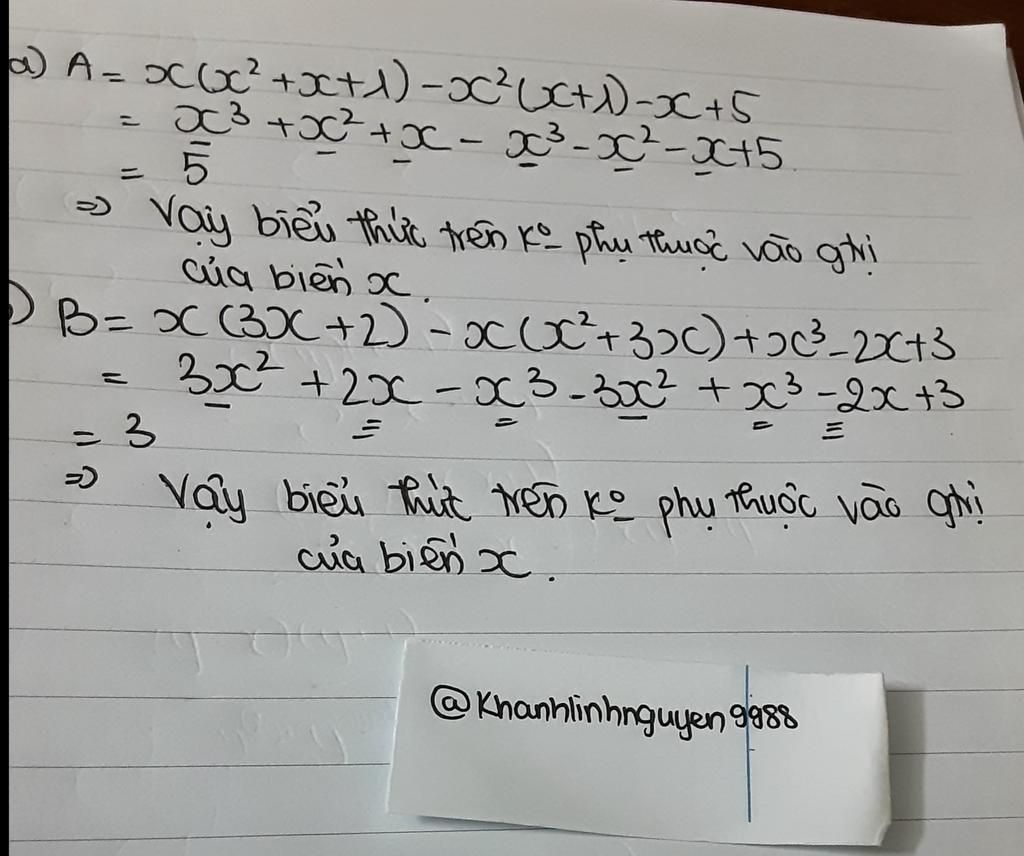 a) A = x(x² + x + 1) - x²(x+1) - x + 5
= x³ + x² + x - x³ - x² - x + 5
= 5
=> Vậy biểu thức trên ko phụ thuộc vào gtrị
của biến x.
) B = x(3x + 2) - x(x² + 3x) + x³ - 2x + 3
= 3x² + 2x - x³ - 3x² + x³ - 2x + 3
= 3
=> Vậy biểu thức trên ko phụ thuộc vào gtrị
của biến x.
@Khanhlinhnguyen9988